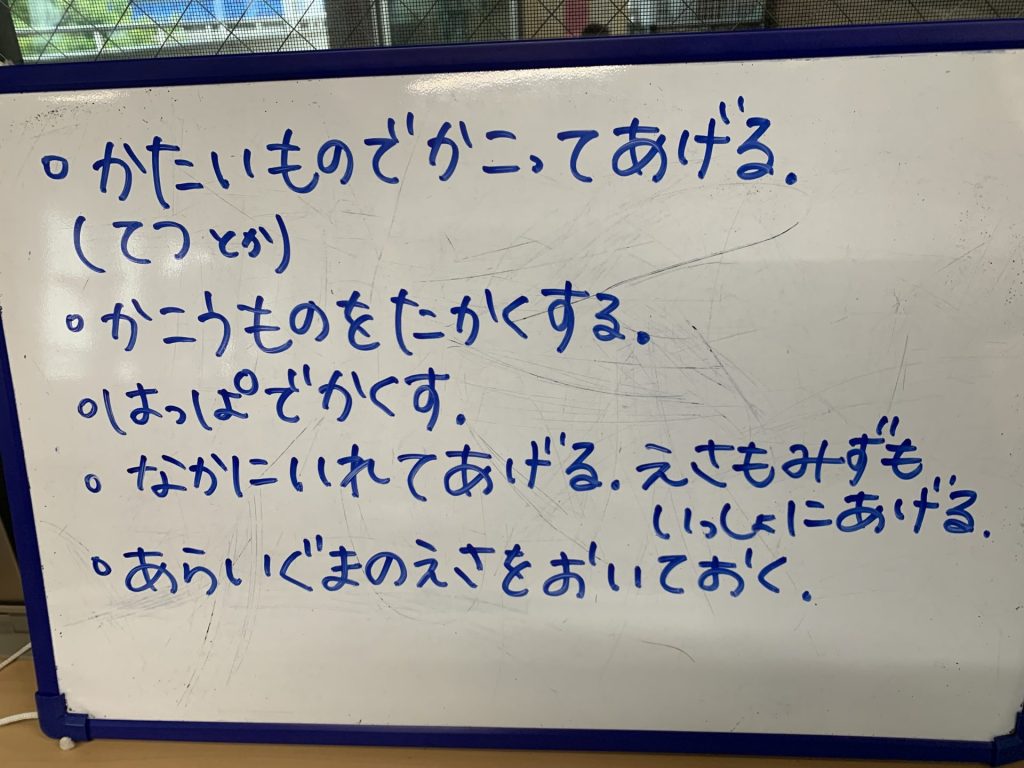 ○ かたいものでかこってあげる.
(てつ とか)
○ かこうものをたかくする.
○ はっぱでかくす.
○ なかにいれてあげる. えさもみずも
いっしょにあげる.
○ あらいぐまのえさをおいておく.